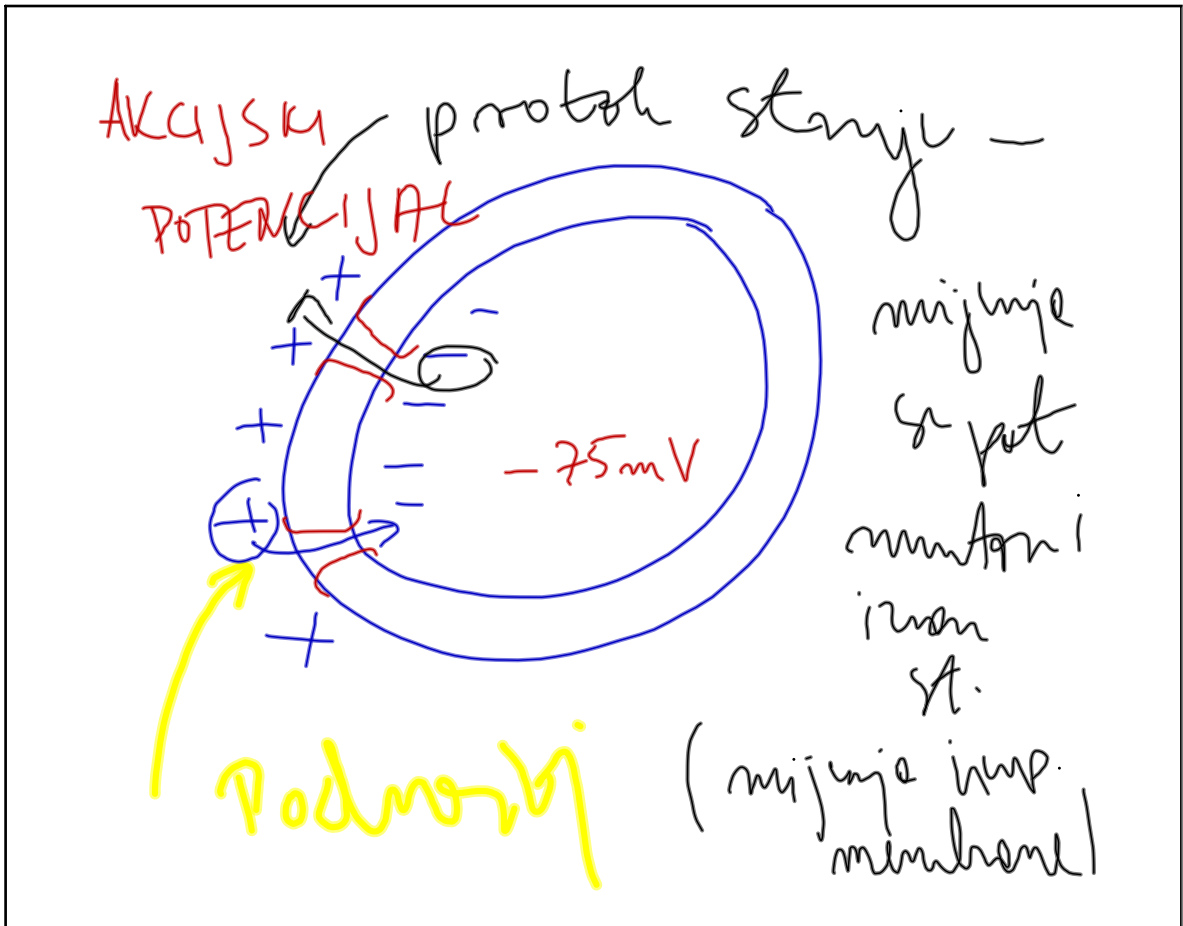 AKCIJSKI
POTENCIJAL
protok struje –
mijenja
se pot
unutar i
izvan
st.
(mijenja imp.
membrane)
-75mV
Podražaj